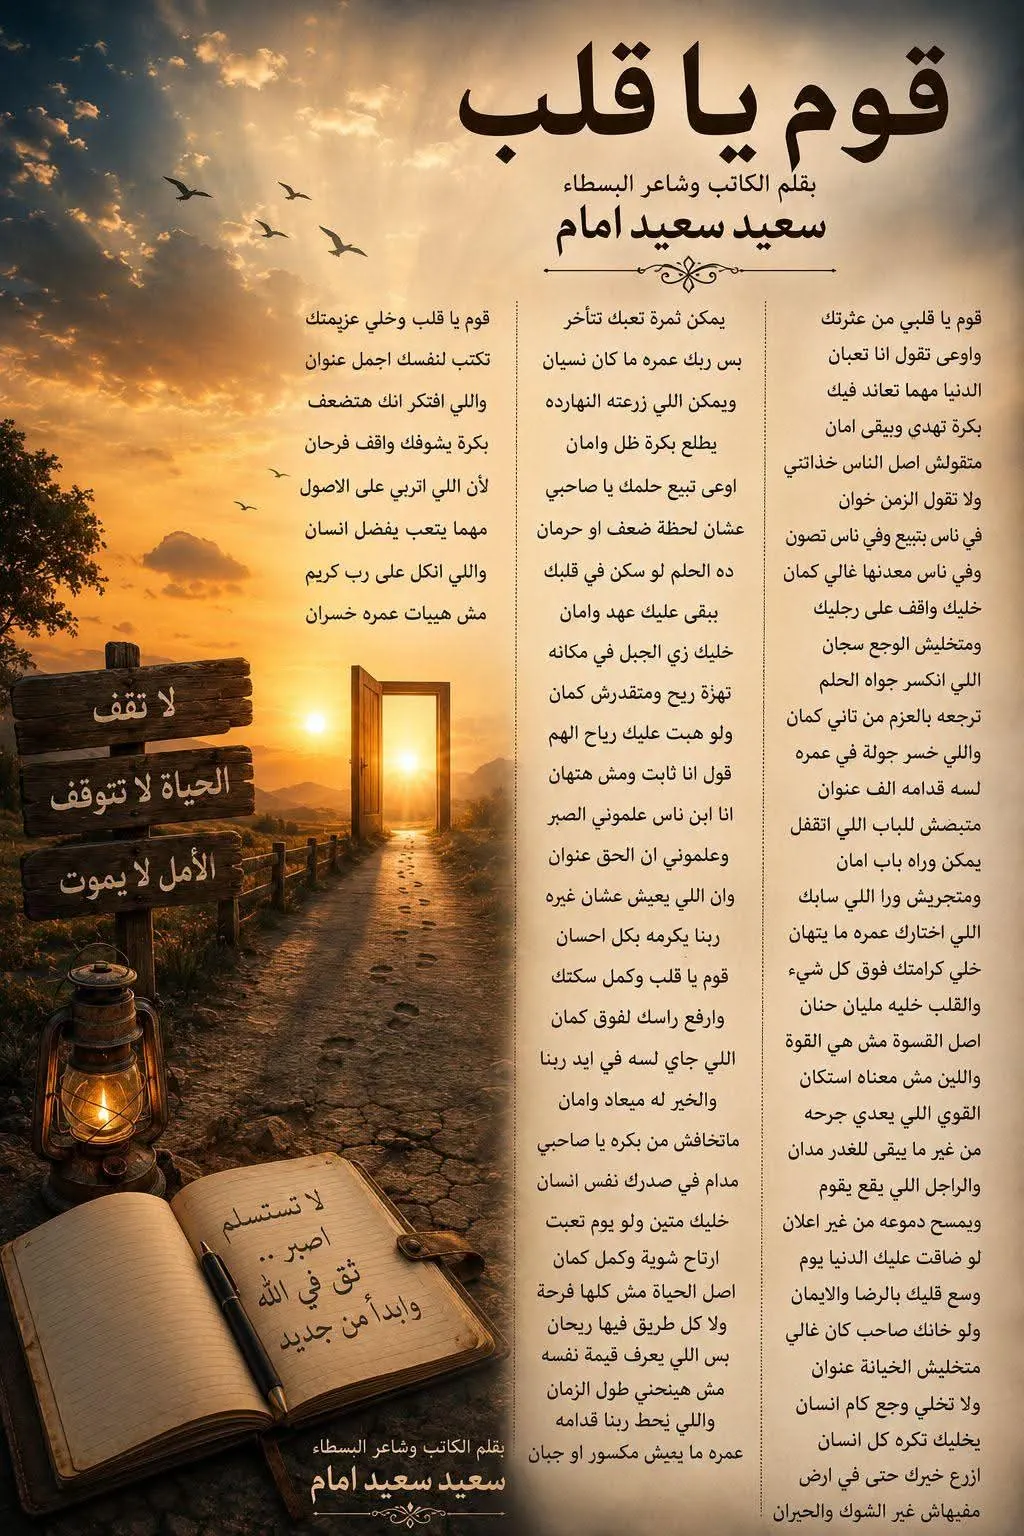 قوم يا قلب
بقلم الكاتب وشاعر البسطاء
سعيد سعيد امام
قوم يا قلبي من عثرتك
واوعى تقول انا تعبان
الدنيا مهما تعاند فيك
بكرة تهدي ويبقى امان
متقولش اصل الناس خذاتني
ولا تقول الزمن خوان
في ناس بتبيع وفي ناس تصون
وفي ناس معدنها غالي كمان
خليك واقف على رجليك
ومتخليش الوجع سجان
اللي انكسر جواه الحلم
ترجعه بالعزم من تاني كمان
واللي خسر جولة في عمره
لسه قدامه الف عنوان
متبصش للباب اللي اتقفل
يمكن وراه باب امان
ومتجريش ورا اللي سابك
اللي اختارك عمره ما يتهان
خلي كرامتك فوق كل شيء
والقلب خليه مليان حنان
اصل القسوة مش هي القوة
واللين مش معناه استكان
القوي اللي يعدي جرحه
من غير ما يبقى للغدر مدان
والراجل اللي يقع يقوم
ويمسح دموعه من غير اعلان
لو ضاقت عليك الدنيا يوم
وسع قلبك بالرضا والايمان
ولو خانك صاحب كان غالي
متخليش الخيانة عنوان
ولا تخلي وجع كام انسان
يخليك تكره كل انسان
ازرع خيرك حتى في ارض
مفيهاش غير الشوك والحيران
يمكن ثمرة تعبك تتأخر
بس ربك عمره ما كان نسيان
ويمكن اللي زرعته النهارده
يطلع بكرة ظل وامان
اوعى تبيع حلمك يا صاحبي
عشان لحظة ضعف او حرمان
ده الحلم لو سكن في قلبك
يبقى عليك عهد وامان
خليك زي الجبل في مكانه
تهزة ريح ومتقدرش كمان
ولو هبت عليك رياح الهم
قول انا ثابت ومش هتهان
انا ابن ناس علموني الصبر
وعلموني ان الحق عنوان
وان اللي يعيش عشان غيره
ربنا يكرمه بكل احسان
قوم يا قلب وكمل سكتك
وارفع راسك لفوق كمان
اللي جاي لسه في ايد ربنا
والخير له ميعاد وامان
ماتخافش من بكره يا صاحبي
مدام في صدرك نفس انسان
خليك متين ولو يوم تعبت
ارتاح شوية وكمل كمان
اصل الحياة مش كلها فرحة
ولا كل طريق فيها ريحان
بس اللي يعرف قيمة نفسه
مش هينحني طول الزمان
واللي يحط ربنا قدامه
عمره ما يعيش مكسور او جبان
قوم يا قلب وخلي عزيمتك
تكتب لنفسك اجمل عنوان
واللي افتكر انك هتضعف
بكرة يشوفك واقف فرحان
لأن اللي اتربي على الاصول
مهما يتعب يفضل انسان
واللي اتكل على رب كريم
مش هييات عمره خسران
لا تقف
الحياة لا تتوقف
الأمل لا يموت
لا تستسلم
اصبر ..
ثق في الله
وابدأ من جديد
بقلم الكاتب وشاعر البسطاء
سعيد سعيد امام